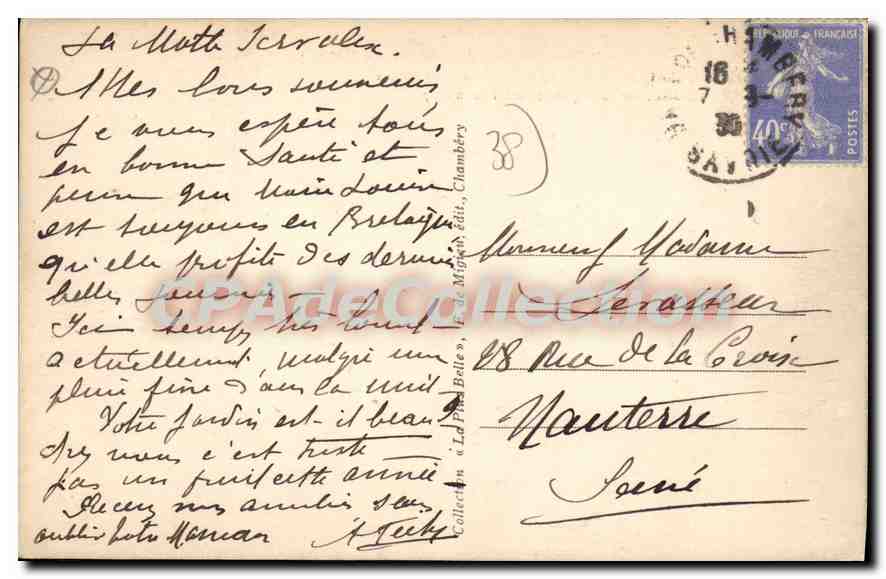 La Motte Servolex.
Mes bons souvenirs
Je vous espère tous
en bonne santé et
pense que Marie Louise
est toujours en Bretagne
qu'elle profite des derniers
belles
Ici temps très lourd
actuellement, malgré une
pluie fine dans la nuit
Votre jardin est-il beau ?
chez nous c'est triste
pas un fruit cette année !
Recevez nos amitiés sans
oublier Maman
38
Collection « La Plus Belle », F. de Migieu, édit., Chambéry
CHAMBERY
16
7 - 8 -
30
SAVOIE
REPUBLIQUE FRANÇAISE
40c
POSTES
Monsieur Madame
Levasseur
28 Rue de la Croix
Nanterre
Seine
CPAdeCollection